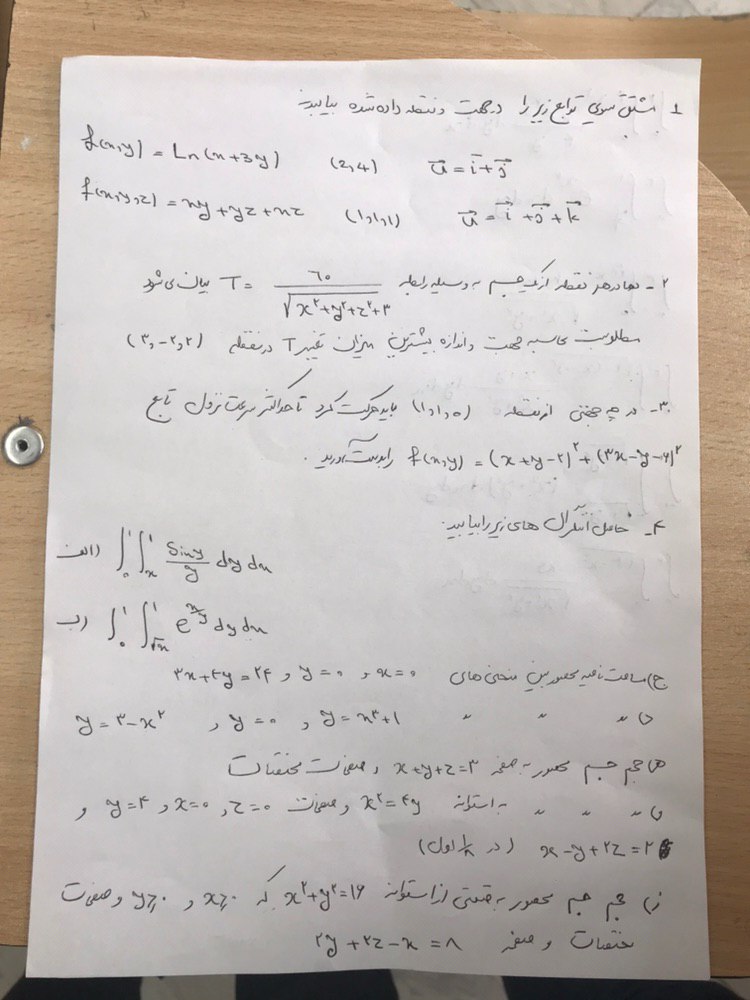 ۱ مشتق سوی توابع زیر را در جهت و نقطه داده شده بیابید
f(x,y) = Ln(x+3y) (2,4) u⃗ = i⃗+j⃗
f(x,y,z) = xy+yz+xz (1,1,1) u⃗ = i⃗+j⃗+k⃗
۲- دما در هر نقطه از یک جسم به وسیله رابطه T = ۶۰ / √(x²+y²+z²+۳) بیان می شود
مطلوبست محاسبه جهت و اندازه بیشترین میزان تغییر T در نقطه (۳,-۲,۲)
۳- در چه جهتی از نقطه (۱,۱,۰) باید حرکت کرد تا حداکثر سرعت نزول تابع
f(x,y) = (x+y-۲)²+(۳x-y-۶)² را بدست آورید.
۴- حاصل انتگرال های زیر را بیابید.
الف) ∫₀¹∫ₓ¹ siny/y dydx
ب) ∫₀¹∫√x¹ e^(x/y) dydx
ج) مساحت ناحیه محصور بین منحنی های x=۰ و y=۰ و ۳x+۴y=۲۴
د) 〃 〃 〃 y=x³+1 , y=۰ , y=۳-x²
ه) حجم جسم محصور به صفحه x+y+z=۳ و صفحات مختصات
و) 〃 〃 〃 به استوانه x²=۴y و صفحات z=۰ , x=۰ و y=۴ و
x-y+۲z=۲ (در ۱/۸ اول)
ز) حجم جسم محصور به قسمتی از استوانه x²+y²=۱۶ که x≥۰ و y≥۰ و صفحات
مختصات و صفحه ۲y+۲z-x=۸